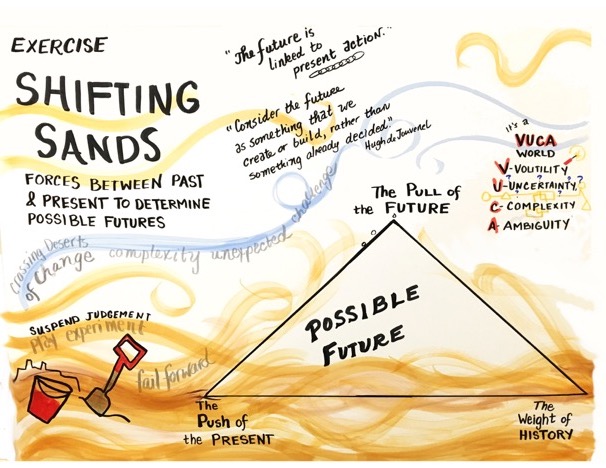 EXERCISE
SHIFTING
SANDS
FORCES BETWEEN PAST
& PRESENT TO DETERMINE
POSSIBLE FUTURES
"The future is
linked to
present action."
"Consider the future
as something that we
create or build, rather than
something already decided."
Hugh de Jouvenel
it's a
VUCA
WORLD
V-VOLITILITY
U-UNCERTAINTY,
C-COMPLEXITY
A-AMBIGUITY
The Pull of
the FUTURE
Crossing Deserts
of Change complexity unexpected challenge
SUSPEND JUDGEMENT
Play experiment
fail forward
POSSIBLE
FUTURE
The
Push of
the PRESENT
The
Weight of
HISTORY